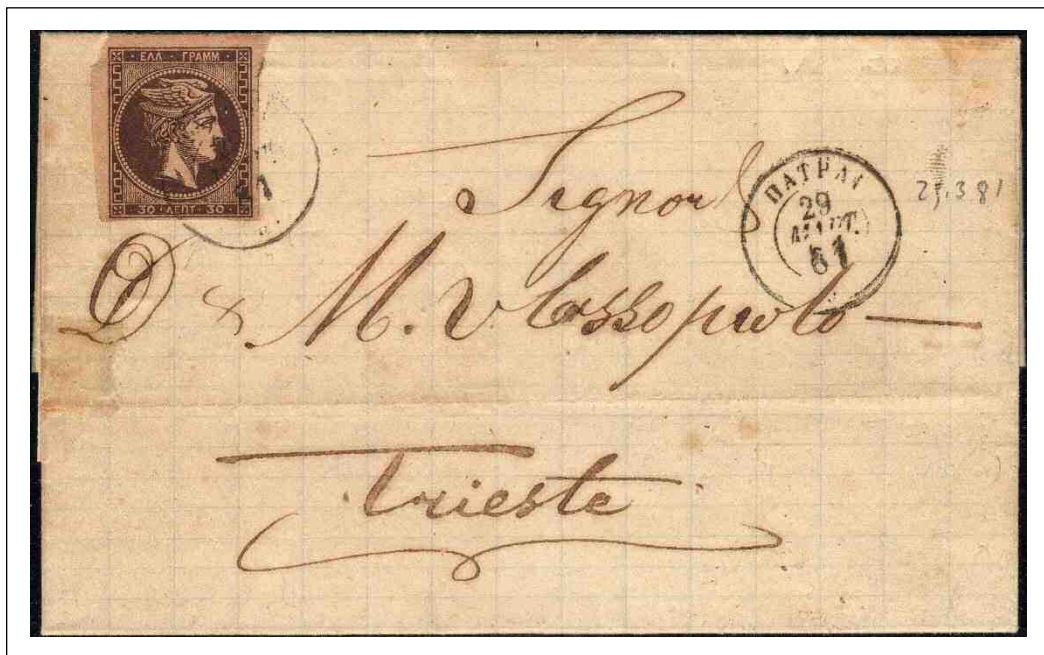 ΕΛΛ ΓΡΑΜΜ
30 ΛΕΠΤ 30
Signor
ΠΑΤΡΑΙ
29
ΜΑΡΤ.
81
29.3.81
D & M. Vlassopulo
Trieste